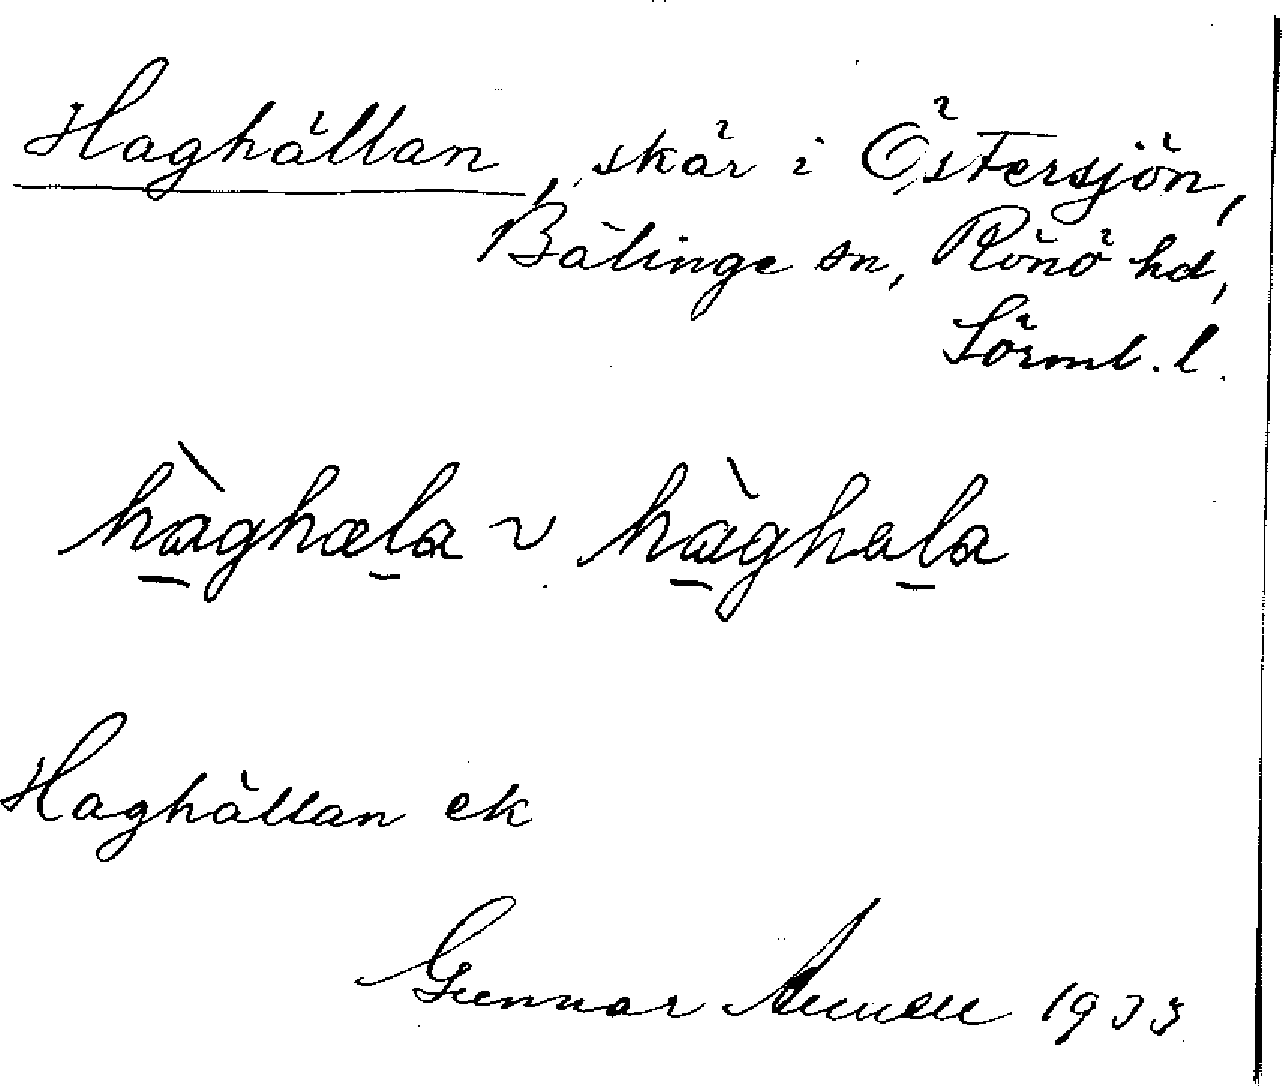 Haghällan, skär i Östersjön,
Bälinge sn, Rönö hd,
Sörml. l.
hàghæla ~ hàghala
Haghällan ek
Gunnar 1933